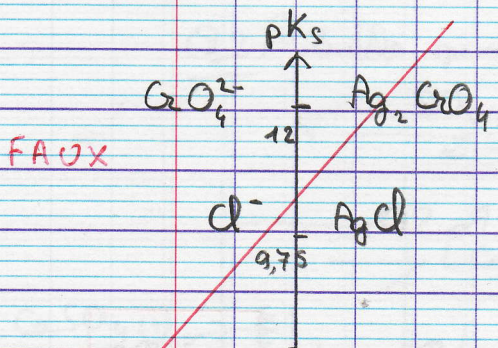 pKs
CrO₄²⁻ Ag₂CrO₄
12
FAUX
Cl⁻ AgCl
9,75